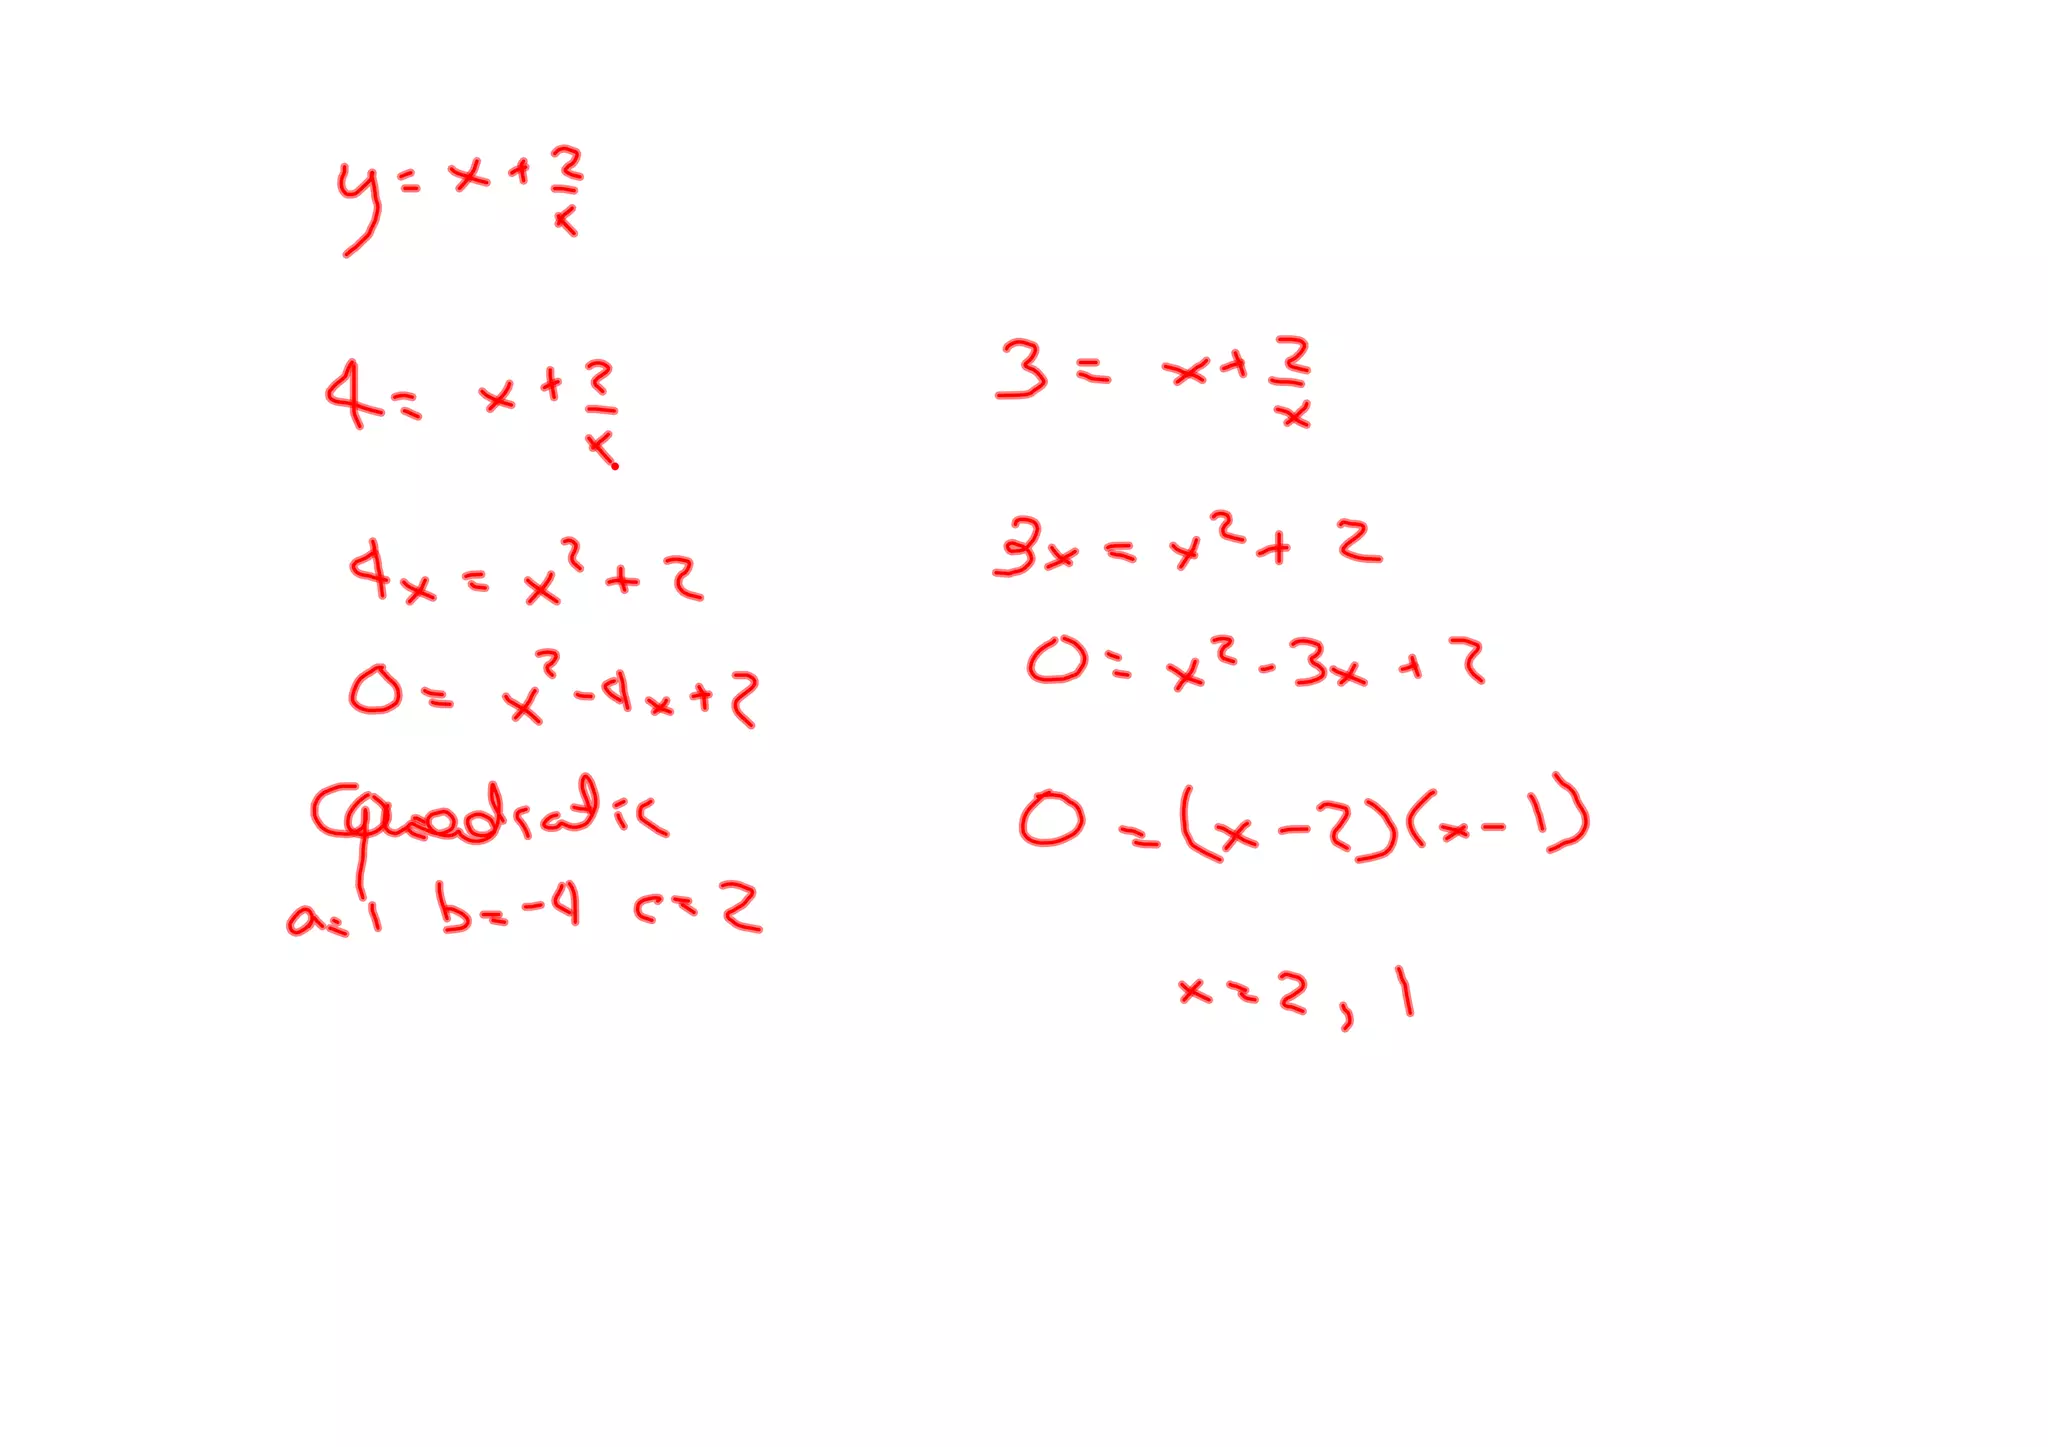 y = x + 2/x
4 = x + 2/x
4x = x² + 2
0 = x² - 4x + 2
Quadratic
a=1 b=-4 c=2
3 = x + 2/x
3x = x² + 2
0 = x² - 3x + 2
0 = (x - 2)(x - 1)
x = 2, 1